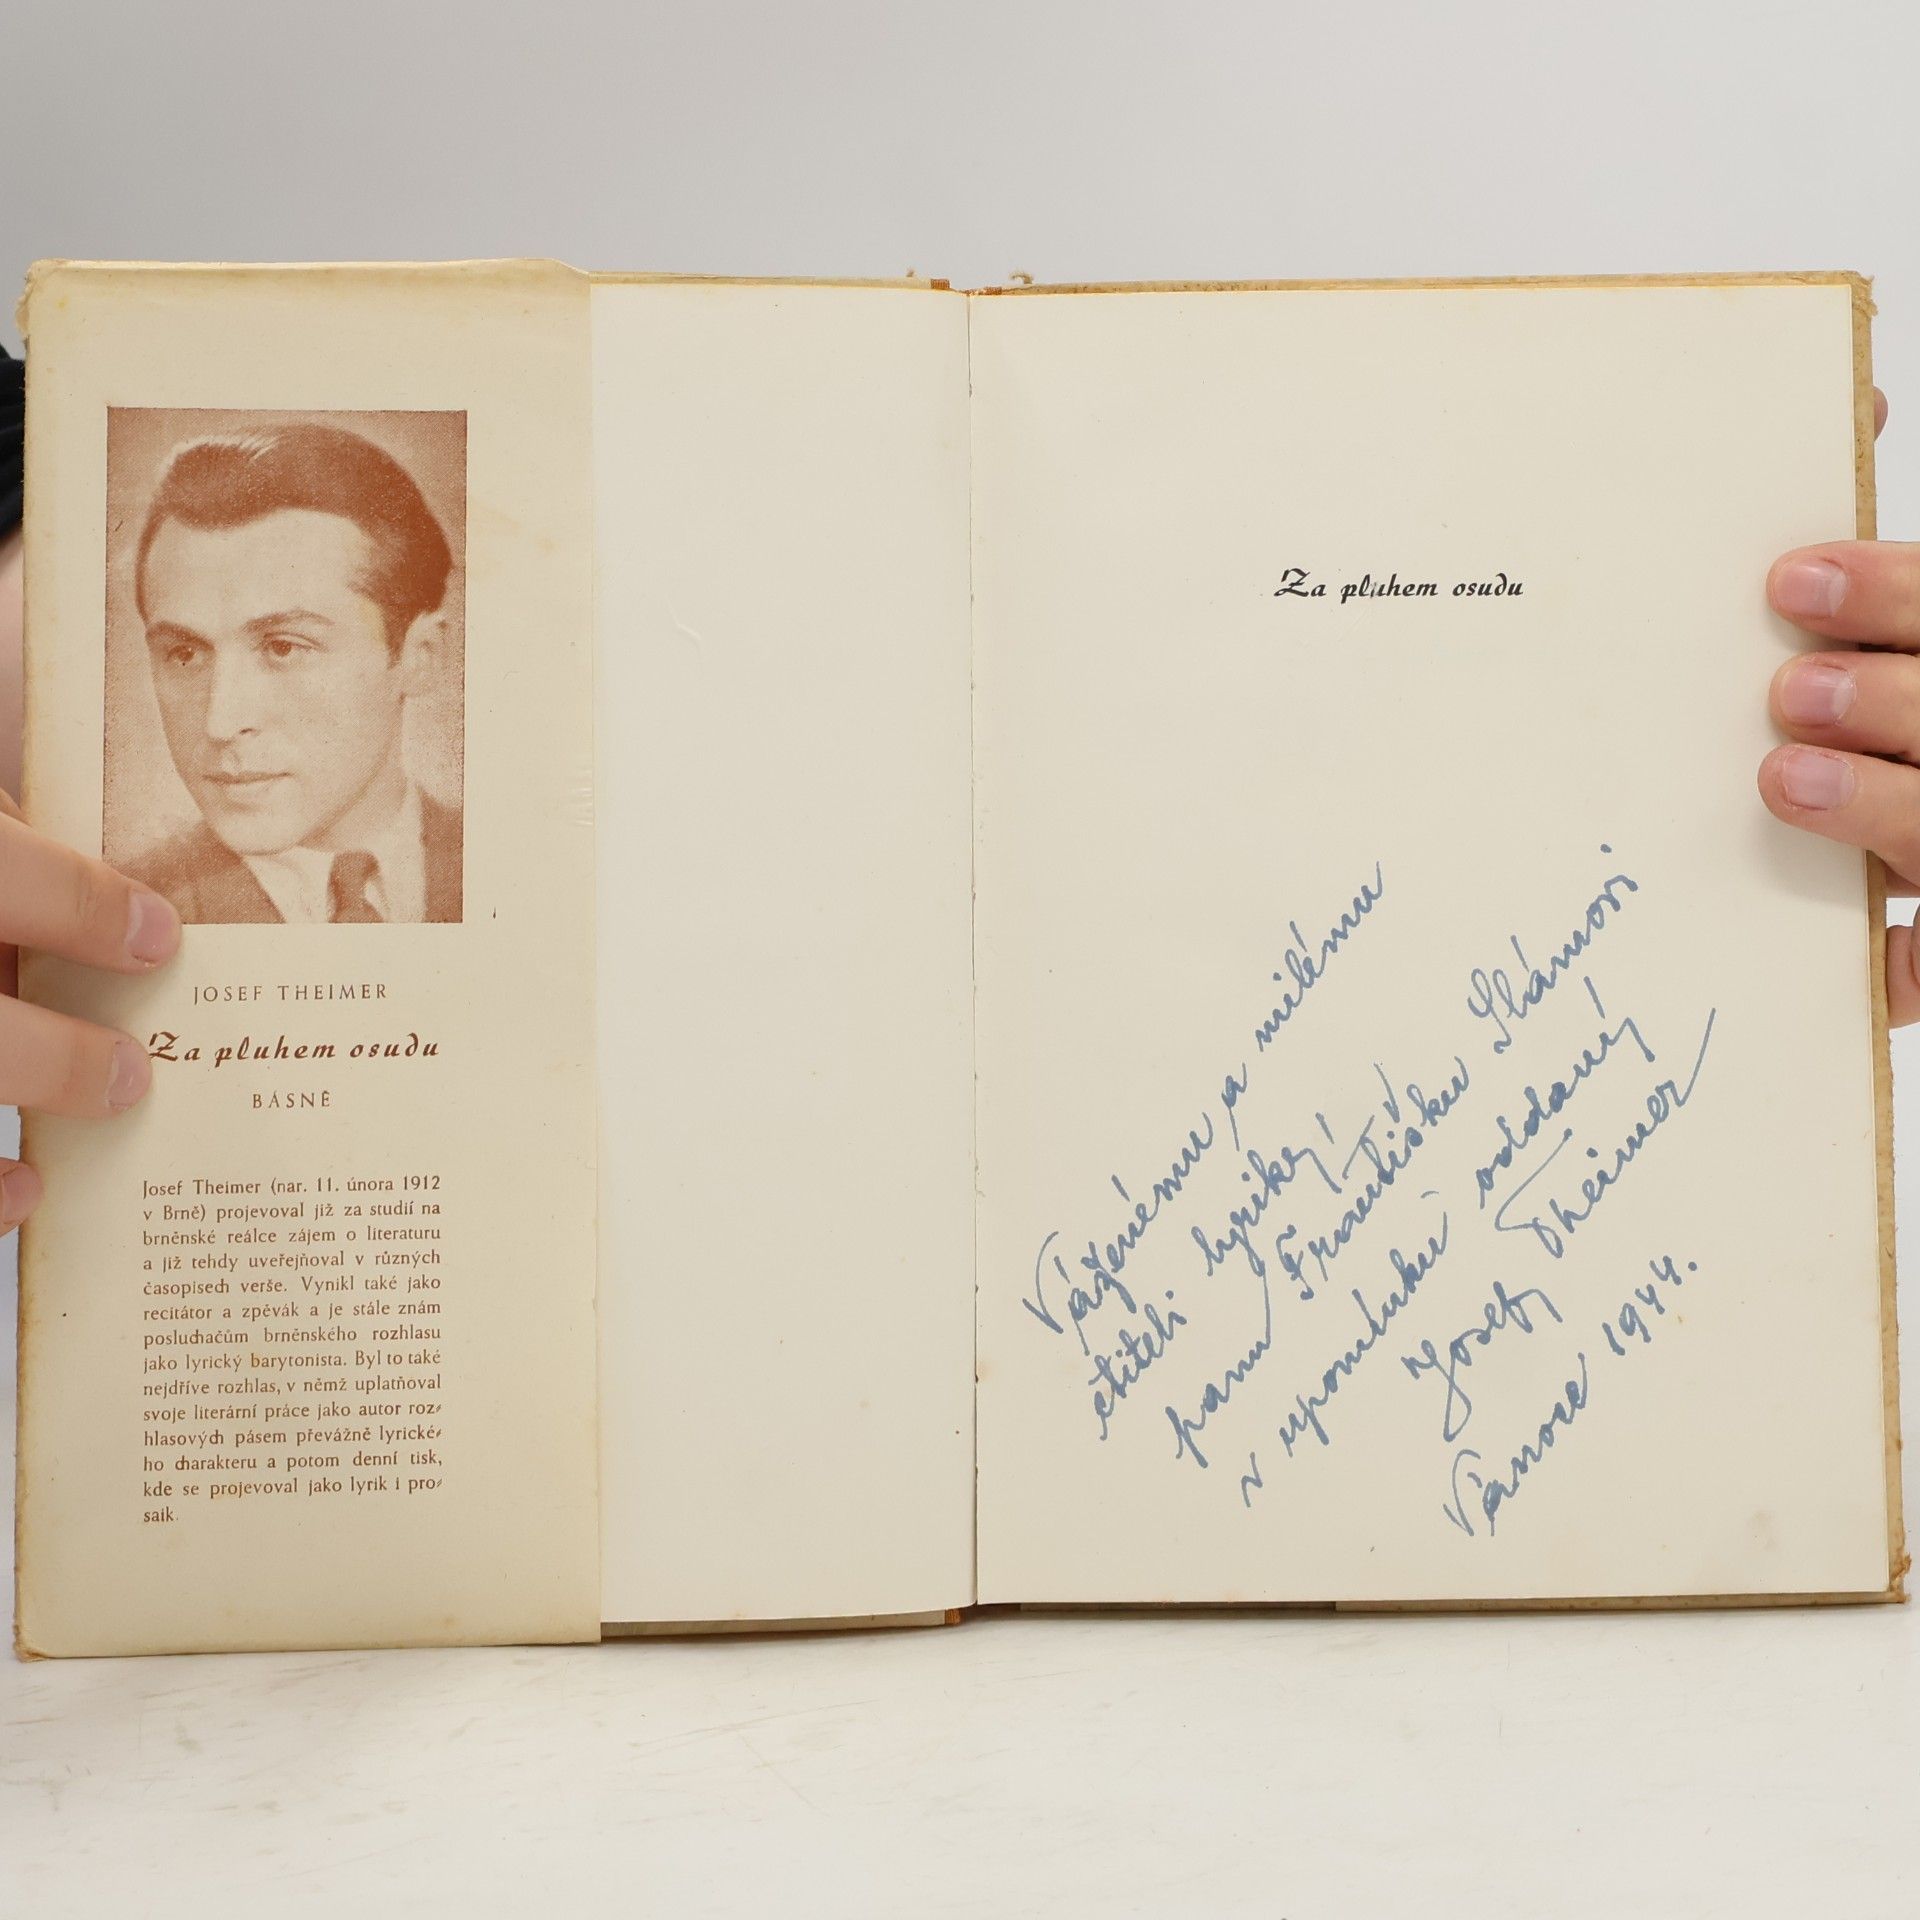 JOSEF THEIMER
Za pluhem osudu
BÁSNĚ
Josef Theimer (nar. 11. února 1912
v Brně) projevoval již za studií na
brněnské reálce zájem o literaturu
a již tehdy uveřejňoval v různých
časopisech verše. Vynikl také jako
recitátor a zpěvák a je stále znám
posluchačům brněnského rozhlasu
jako lyrický barytonista. Byl to také
nejdříve rozhlas, v němž uplatňoval
svoje literární práce jako autor roz-
hlasových pásem převážně lyrické-
ho charakteru a potom denní tisk,
kde se projevoval jako lyrik i pro-
saik.
Za pluhem osudu
Váženému a milému
ctiteli lyriky,
panu Františku Slámovi
v upomínku oddaný
Josef Theimer
Vánoce 1944.